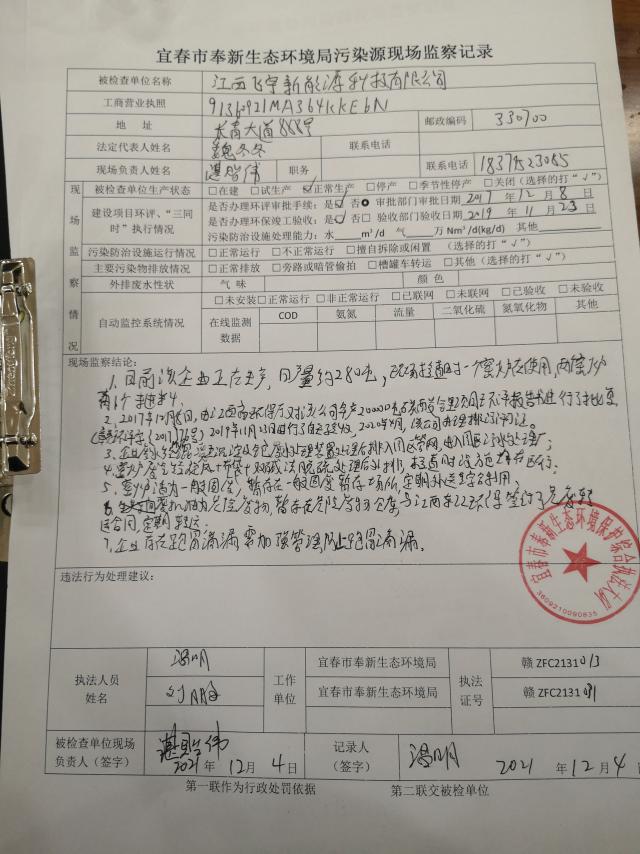 宜春市奉新生态环境局污染源现场监察记录
被检查单位名称 江西飞宇新能源科技有限公司
工商营业执照 91360921MA364KKE6N
地 址 长青大道888号 邮政编码 330700
法定代表人姓名 魏冬冬 联系电话
现场负责人姓名 湛贻伟 职务 联系电话
现场监察情况
被检查单位生产状态 □在建 □试生产 ☑正常生产 □停产 □季节性停产 □关闭(选择的打“√”)
建设项目环评、“三同时”执行情况
是否办理环评审批手续:是☑ 否 审批部门审批日期 2017 年 12 月 8 日
是否办理环保竣工验收:是☑ 否□ 验收部门验收日期 2019 年 11 月 23 日
污染防治设施处理能力:水 m³/d 气 万Nm³/d(kg/d) 其他
污染防治设施运行情况 □正常运行 □不正常运行 □擅自拆除或闲置 (选择的打“√”)
主要污染物排放情况 □正常排放 □旁路或暗管偷拍 □槽罐车转运 □其他(选择的打“√”)
外排废水性状 气 味 颜 色
自动监控系统情况 □未安装□正常运行 □非正常运行 □已联网 □未联网 □已验收 □未验收
在线监测数据 COD 氨氮 流量 二氧化硫 氮氧化物 其他
现场监察结论:
1、目前该企业正在生产,日产量约280吨,现场检查时一个窑炉在使用,两窑炉
有6个
2、2017年12月8日,由江西省环保厅对该公司年产200000吨 项目环评报告书进行了批复
(2017)76号) 2019年11月23日进行了自主验收,2020年 月,该公司办理排污许可证。
3、企业 处理后排入园区管网,由入园区污水处理厂;
4、窑炉废气经旋风+布袋+双碱法脱硫处理后外排,检查时设施 运行。
5、窑炉渣为一般固废,暂存在一般固废暂存场所,定期外运综合利用。
6、 机油为危险废物,暂存在危险废物仓库,与江西 环保签订了危废转
运合同,定期转运;
7、企业存在跑冒滴漏,需加强管理防止跑冒滴漏。
宜春市奉新生态环境保护综合执法大队
3609210090835
违法行为处理建议:
执法人员姓名 冯明 工作单位 宜春市奉新生态环境局 执法证号 赣 ZFC2131013
宜春市奉新生态环境局 赣 ZFC2131031
被检查单位现场负责人(签字) 湛贻伟 2021年 12月 4日
记录人(签字) 冯明 2021 年 12月 4日
第一联作为行政处罚依据 第二联交被检单位